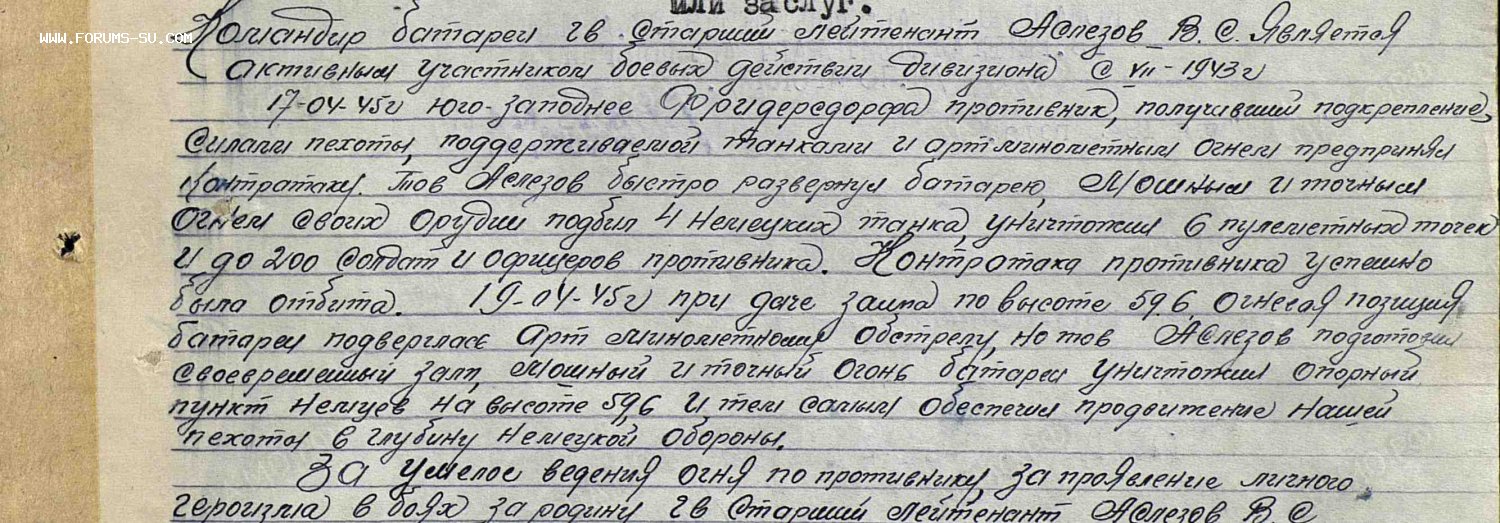 или заслуг.
WWW.FORUMS-SU.COM
Командир батареи гв старший лейтенант Аслезов В.С. Является
активным участником боевых действии дивизиона С VII-1943г
17-04-45г юго-западнее Фридередорфа противник, получивший подкрепление,
силами пехоты, поддерживаемой танками и артминометным огнем предпринял
контратаку. Тов Аслезов быстро развернул батарею, Мошным и точным
огнем своих орудии подбил 4 немецких танка, уничтожил 6 пулеметных точек
и до 200 солдат и офицеров противника. Контротака противника успешно
была отбита. 19-04-45г при даче залпа по высоте 59,6 огневая позиция
батареи подверглась арт минометному обстрелу, но тов Аслезов подготовил
своевременный залп, мошный и точный огонь батареи уничтожил опорный
пункт немцев на высоте 59,6 и тем самым обеспечил продвижение нашей
пехоты в глубину немецкой обороны.
За умелое ведения огня по противнику, за проявление личного
героизма в боях за родину гв старший лейтенант Аслезов В.С